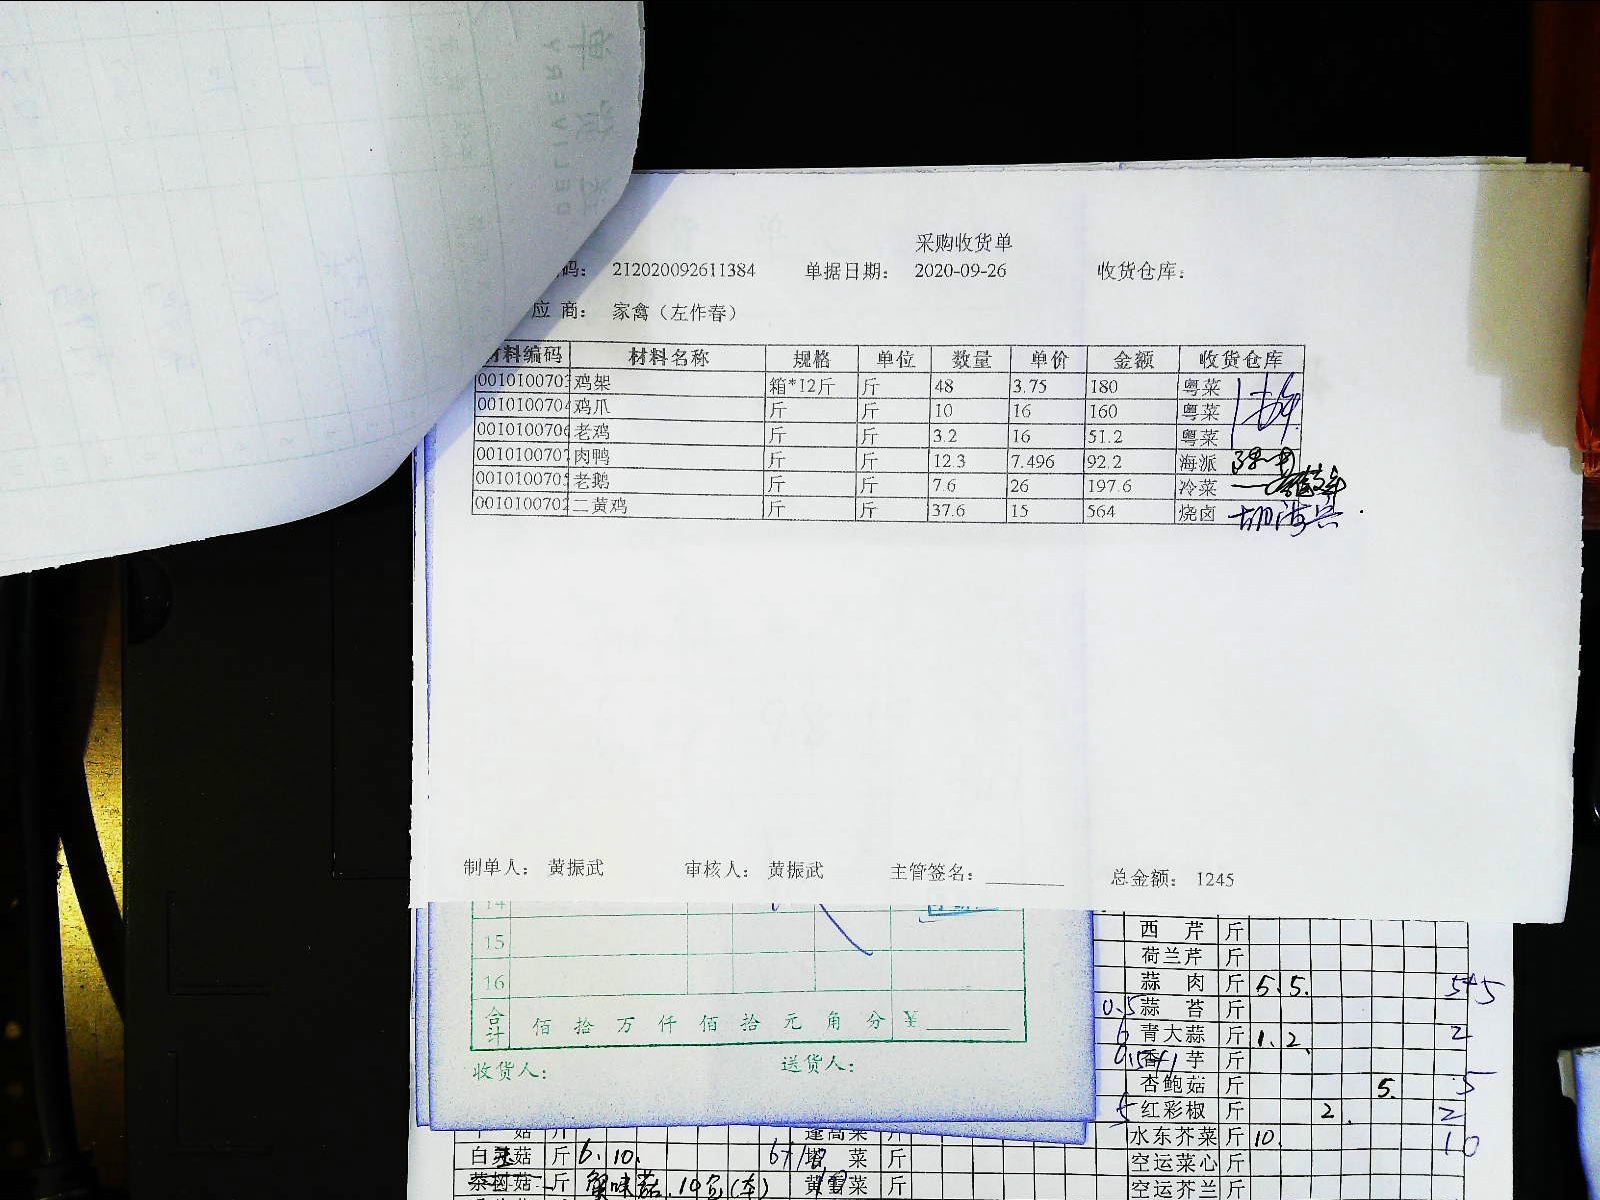 采购收货单
码: 212020092611384 单据日期: 2020-09-26 收货仓库:
应 商: 家禽（左作春）
材料编码 材料名称 规格 单位 数量 单价 金额 收货仓库
0010100703 鸡架 箱*12斤 斤 48 3.75 180 粤菜
0010100704 鸡爪 斤 斤 10 16 160 粤菜
0010100706 老鸡 斤 斤 3.2 16 51.2 粤菜
0010100707 肉鸭 斤 斤 12.3 7.496 92.2 海派
0010100705 老鹅 斤 斤 7.6 26 197.6 冷菜
0010100702 二黄鸡 斤 斤 37.6 15 564 烧卤
制单人: 黄振武 审核人: 黄振武 主管签名: 总金额: 1245
14
15
16
合计 佰 拾 万 仟 佰 拾 元 角 分 ¥
收货人: 送货人:
西 芹 斤
荷兰芹 斤
蒜 肉 斤 5. 5. 5+5
0.5 蒜 苔 斤
6 青大蒜 斤 1. 2. 2
香 芋 斤
杏鲍菇 斤 5. 5
5 红彩椒 斤 2. 2
水东芥菜 斤 10. 10
空运菜心 斤
空运芥兰 斤
蓬蒿菜 斤
白玉菇 斤 6. 10. 6+10 菜 斤
茶树菇 斤 蟹味菇 10包(车) 黄 菜 斤